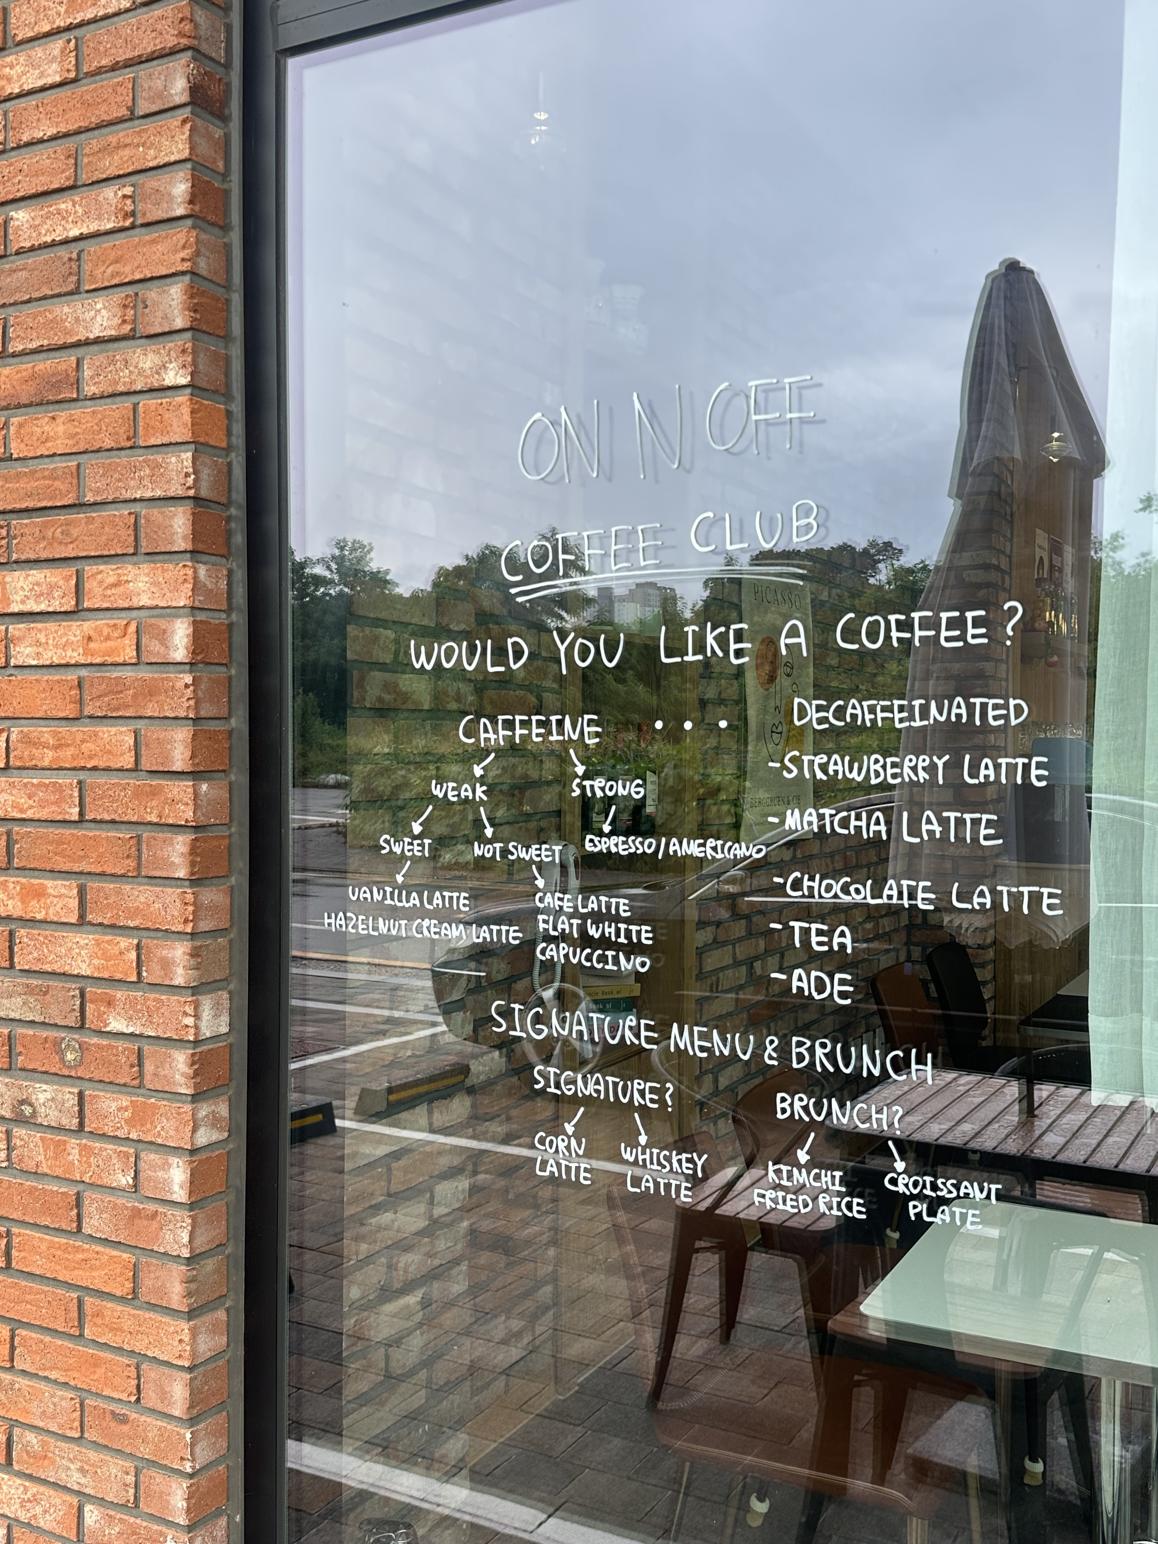 ON N OFF
COFFEE CLUB
PICASSO
WOULD YOU LIKE A COFFEE?
CAFFEINE ... DECAFFEINATED
WEAK STRONG
SWEET NOT SWEET ESPRESSO / AMERICANO
VANILLA LATTE
HAZELNUT CREAM LATTE
CAFE LATTE
FLAT WHITE
CAPUCCINO
-STRAWBERRY LATTE
-MATCHA LATTE
-CHOCOLATE LATTE
-TEA
-ADE
SIGNATURE MENU & BRUNCH
SIGNATURE?
CORN
LATTE
WHISKEY
LATTE
BRUNCH?
KIMCHI
FRIED RICE
CROISSANT
PLATE